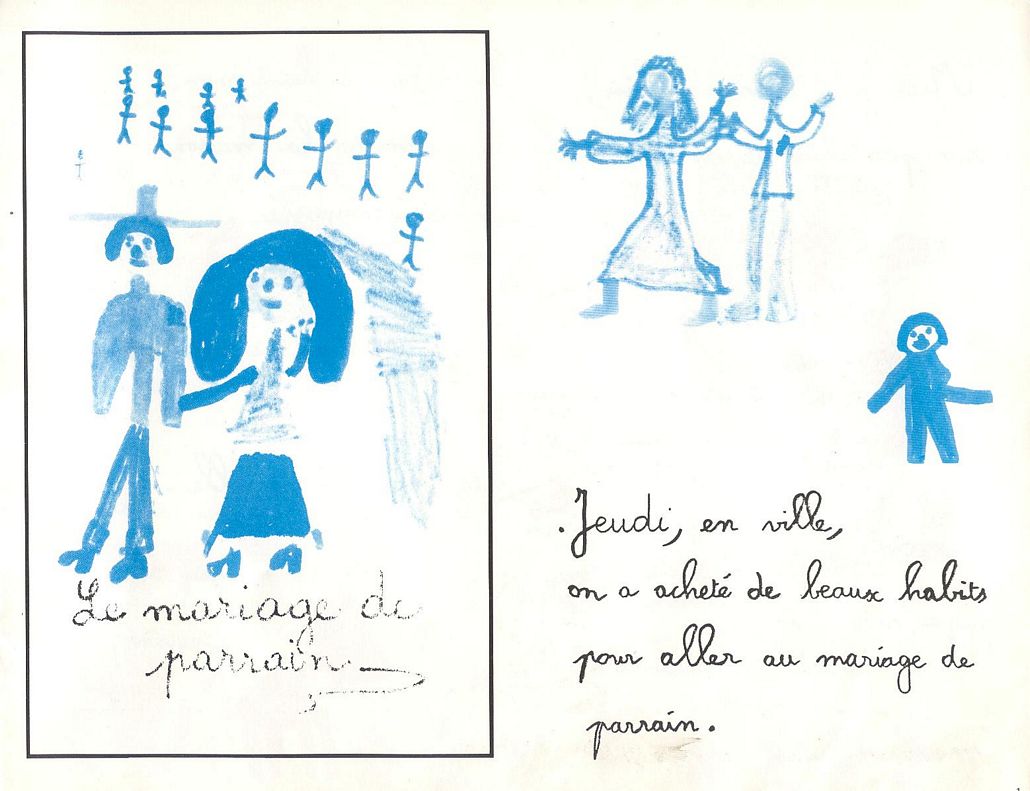 Le mariage de
parrain
. Jeudi, en ville,
on a acheté de beaux habits
pour aller au mariage de
parrain.